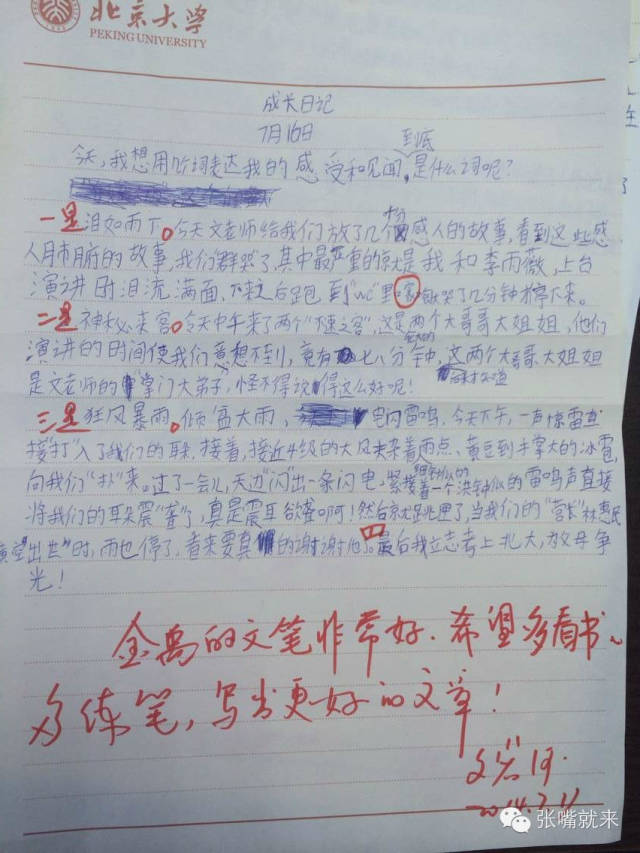 北京大学
PEKING UNIVERSITY
成长日记
7月16日
今天,我想用几个词表达我的感受和见闻,到底是什么词呢?
一是泪如雨下。今天文老师给我们放了几个感人的故事,看到这些感
人肺腑的故事,我们群哭了,其中最严重的就是我和李雨薇,上台
演讲时泪流满面,下来之后跑到"wc"里哭了几分钟才停下来。
二是神秘来客。今天中午来了两个"不速之客",这是两个大哥哥大姐姐,他们
演讲的时间使我们意想不到,竟有七八分钟,这两个大哥哥大姐姐
是文老师的"掌门大弟子,怪不得说得这么好呢!
三是狂风暴雨。倾盆大雨,电闪雷鸣,今天下午,一声惊雷直
接"打"入了我们的耳朵,接着,接近4级的大风夹杂着雨点、黄豆到手掌大的冰雹,
向我们"扑"来。过了一会儿,天边"闪"出一条闪电。紧接着一个洪钟似的雷鸣声直接
将我们的耳朵震"聋"了,真是震耳欲聋啊!然后就跳匣了,当我们的"营长"林惠民
"出世"时,雨也停了,看来要真的谢谢他。四最后我立志考上北大,为母争
光!
金禹的文笔非常好.希望多看书、
多练笔,写出更好的文章!
2014.7.21
张嘴就来